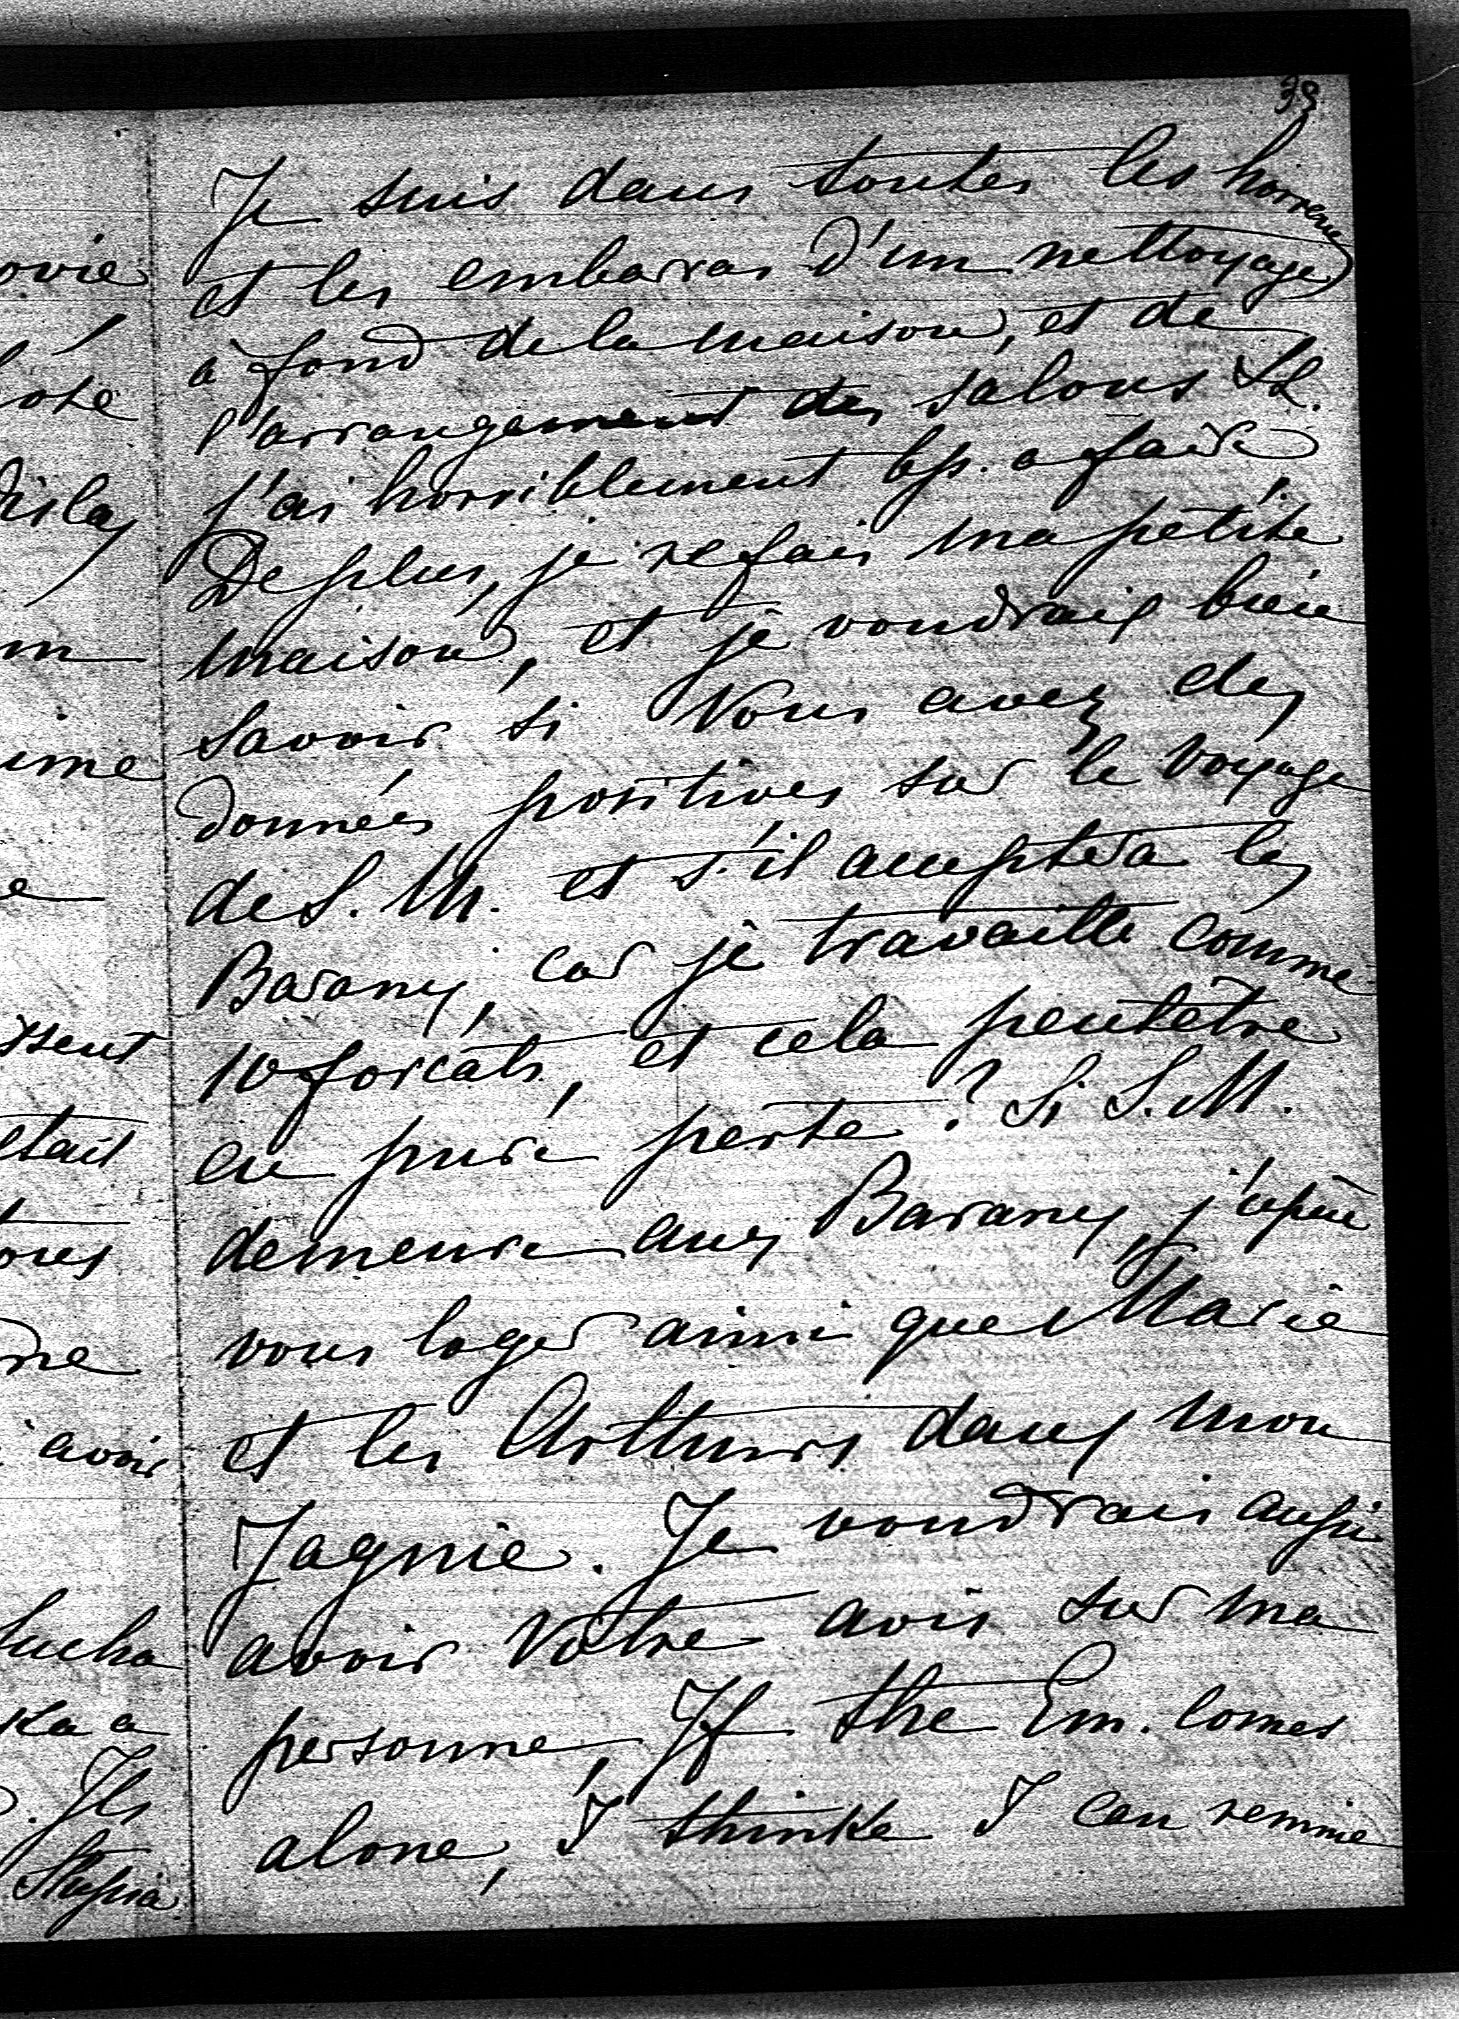 39
Je suis dans toutes les horreurs
et les embarras d'un nettoyage
à fond de la maison, et de
l'arrangement des salons &.
j'ai horriblement bp. a faire
De plus, je refais ma petite
maison, et je voudrais bien
savoir si Vous avez des
données positives sur le voyage
de S. M. et s'il acceptera les
Barany, car je travaille comme
10 forcats, et cela peutêtre
en pure perte? Si S. M.
demeure aux Barany, j'espère
vous loger ainsi que Marie
et les Arthurs dans mon
Jagnie. Je voudrais aussi
avoir Votre avis sur ma
personne, If the Em. comes
alone, I thinke I can
ovie
isent
etait
ne
avoir
ka a
. Ils